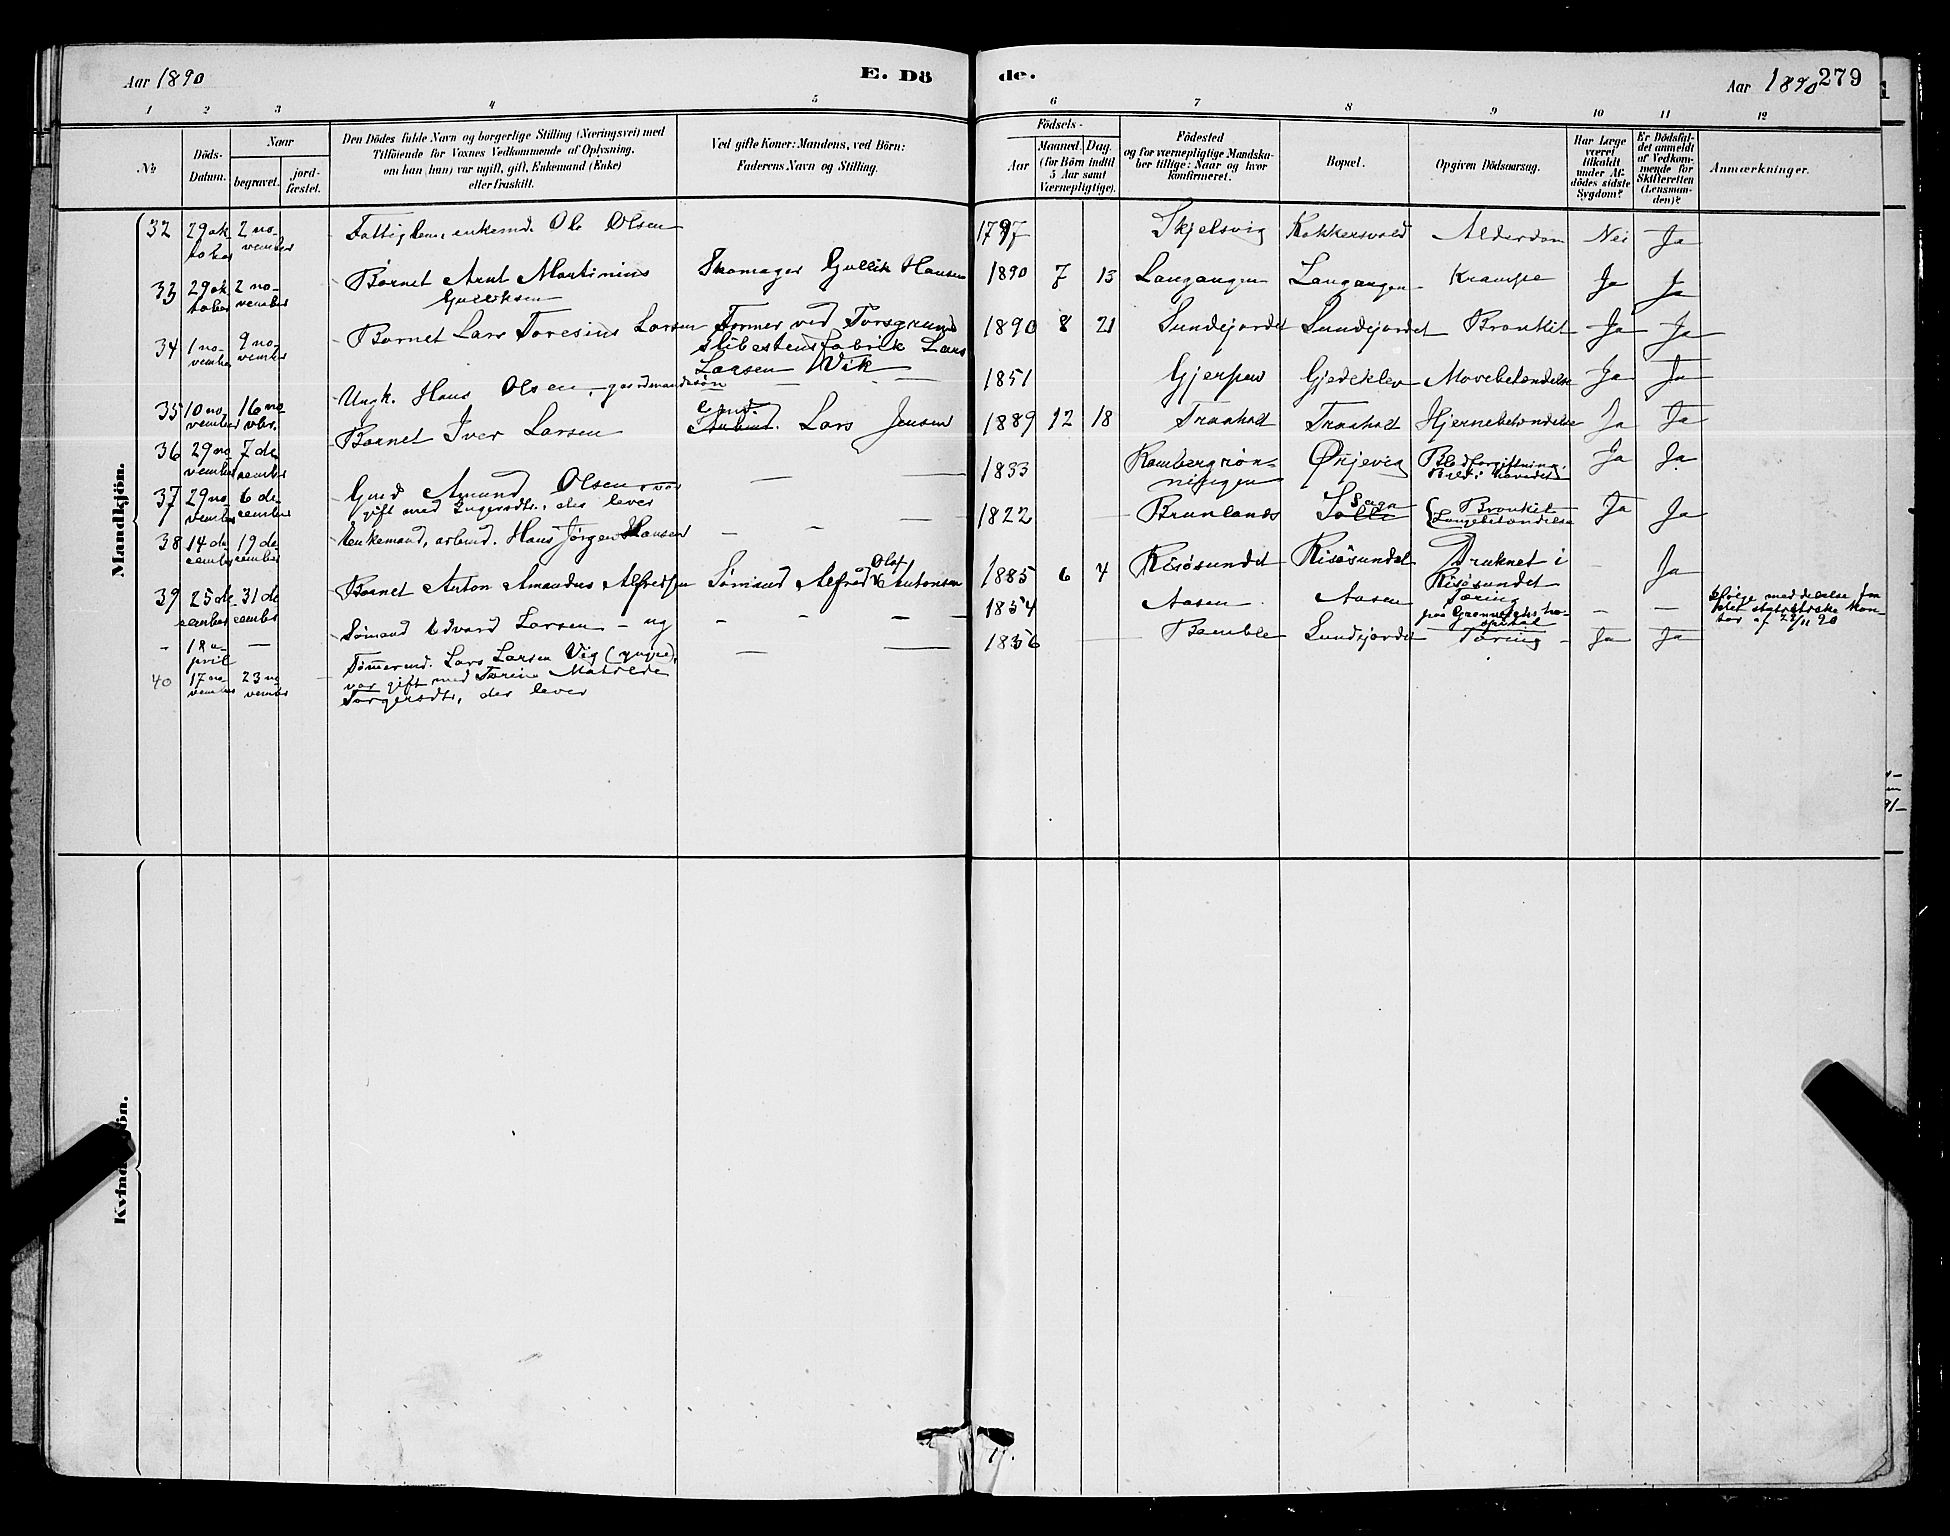 Aar 1890
E. Dö
de.
Aar 1890
279
1 2 3 4 5 6 7 8 9 10 11 12
No
Döds-
Datum.
Naar
begravet.
jord-
fæstet.
Den Dödes fulde Navn og borgerlige Stilling (Næringsvei) med
Tilföiende for Voxnes Vedkommende af Oplysning,
om han (hun) var ugift, gift, Enkemand (Enke)
eller fraskilt.
Ved gifte Koner: Mandens, ved Börn:
Faderens Navn og Stilling.
Födsels-
Aar
Maaned.
Dag.
(for Börn indtil
5 Aar samt
Værnepligtige).
Födested
og for værnepligtige Mandska-
ber tillige: Naar og hvor
konfirmeret.
Bopæl.
Opgiven Dödsaarsag.
Har Læge
været
tilkaldt
under Af-
dödes sidste
Sygdom?
Er Dödsfal-
det anmeldt
af Vedkom-
mende for
Skifteretten
(Lensman-
den)?
Anmærkninger.
Mandkjön.
32 29 ok-
tober 2 no-
vember Fattiglem, enkemd. Ole Olsen 1797 Skjelsvig Kokkersvold Alderdom Nei Ja
33 29 ok-
tober 2 no-
vember Barnet Arnt Martinius
Gulliksen Skomager Gullik Hansen 1890 7 13 Langangen Langangen Krampe Ja Ja
34 1 no-
vember 9 no-
vember Barnet Lars Toresius Larsen Former ved Porsgrund
slibestensfabrik Lars
Larsen Vik 1890 8 21 Sundejordet Sundejordet Bronkit Ja Ja
35 10 no-
vember 16 no-
vbr. Ungk. Hans Olsen, gaardmandssøn — — 1851 Gjerpen Gjedeklev Mavebetændelse Ja Ja
36 29 no-
vember 7 de-
cember Barnet Iver Larsen Gmd.
Arbmd. Lars Jensen 1889 12 18 Traaholt Traaholt Hjernebetændelse Ja Ja
37 29 no-
vember 6 de-
cember Gmd Amund Olsen, var
gift med Ingersdtr., der lever — — 1833 Rambergrøn-
ningen Ønjevig Blodforgiftning. Ja Ja
38 14 de-
cember 19 de-
cember Enkemand, arbmd. Hans Jørgen Hansen — — 1822 — Brunlanes Saga Bronkit
Lungebetændelse Ja Ja
39 25 de-
cember 31 de-
cember Barnet Anton Amandus Alfredsen Sømand Alfred Olaf Antonsen 1885 6 4 Risøsundet Risøsundet Druknet i
Risøsundet - Ja
- 18 a-
pril — Sømand Edvard Larsen - ug - - - 1854 Aasen Aasen Tæring
paa Grønnegades ho-
spital — — Ifølge meddelelse fra
det statistiske kon-
tor af 22/11 90
40 17 no-
vember 23 no-
vember Tømmermd. Lars Larsen Vig (yngre),
var gift med Torine Matilde
Torgersdtr., der lever — — 1856 — Bamble Sundejordet Tæring Ja Ja
Kvindekjön.